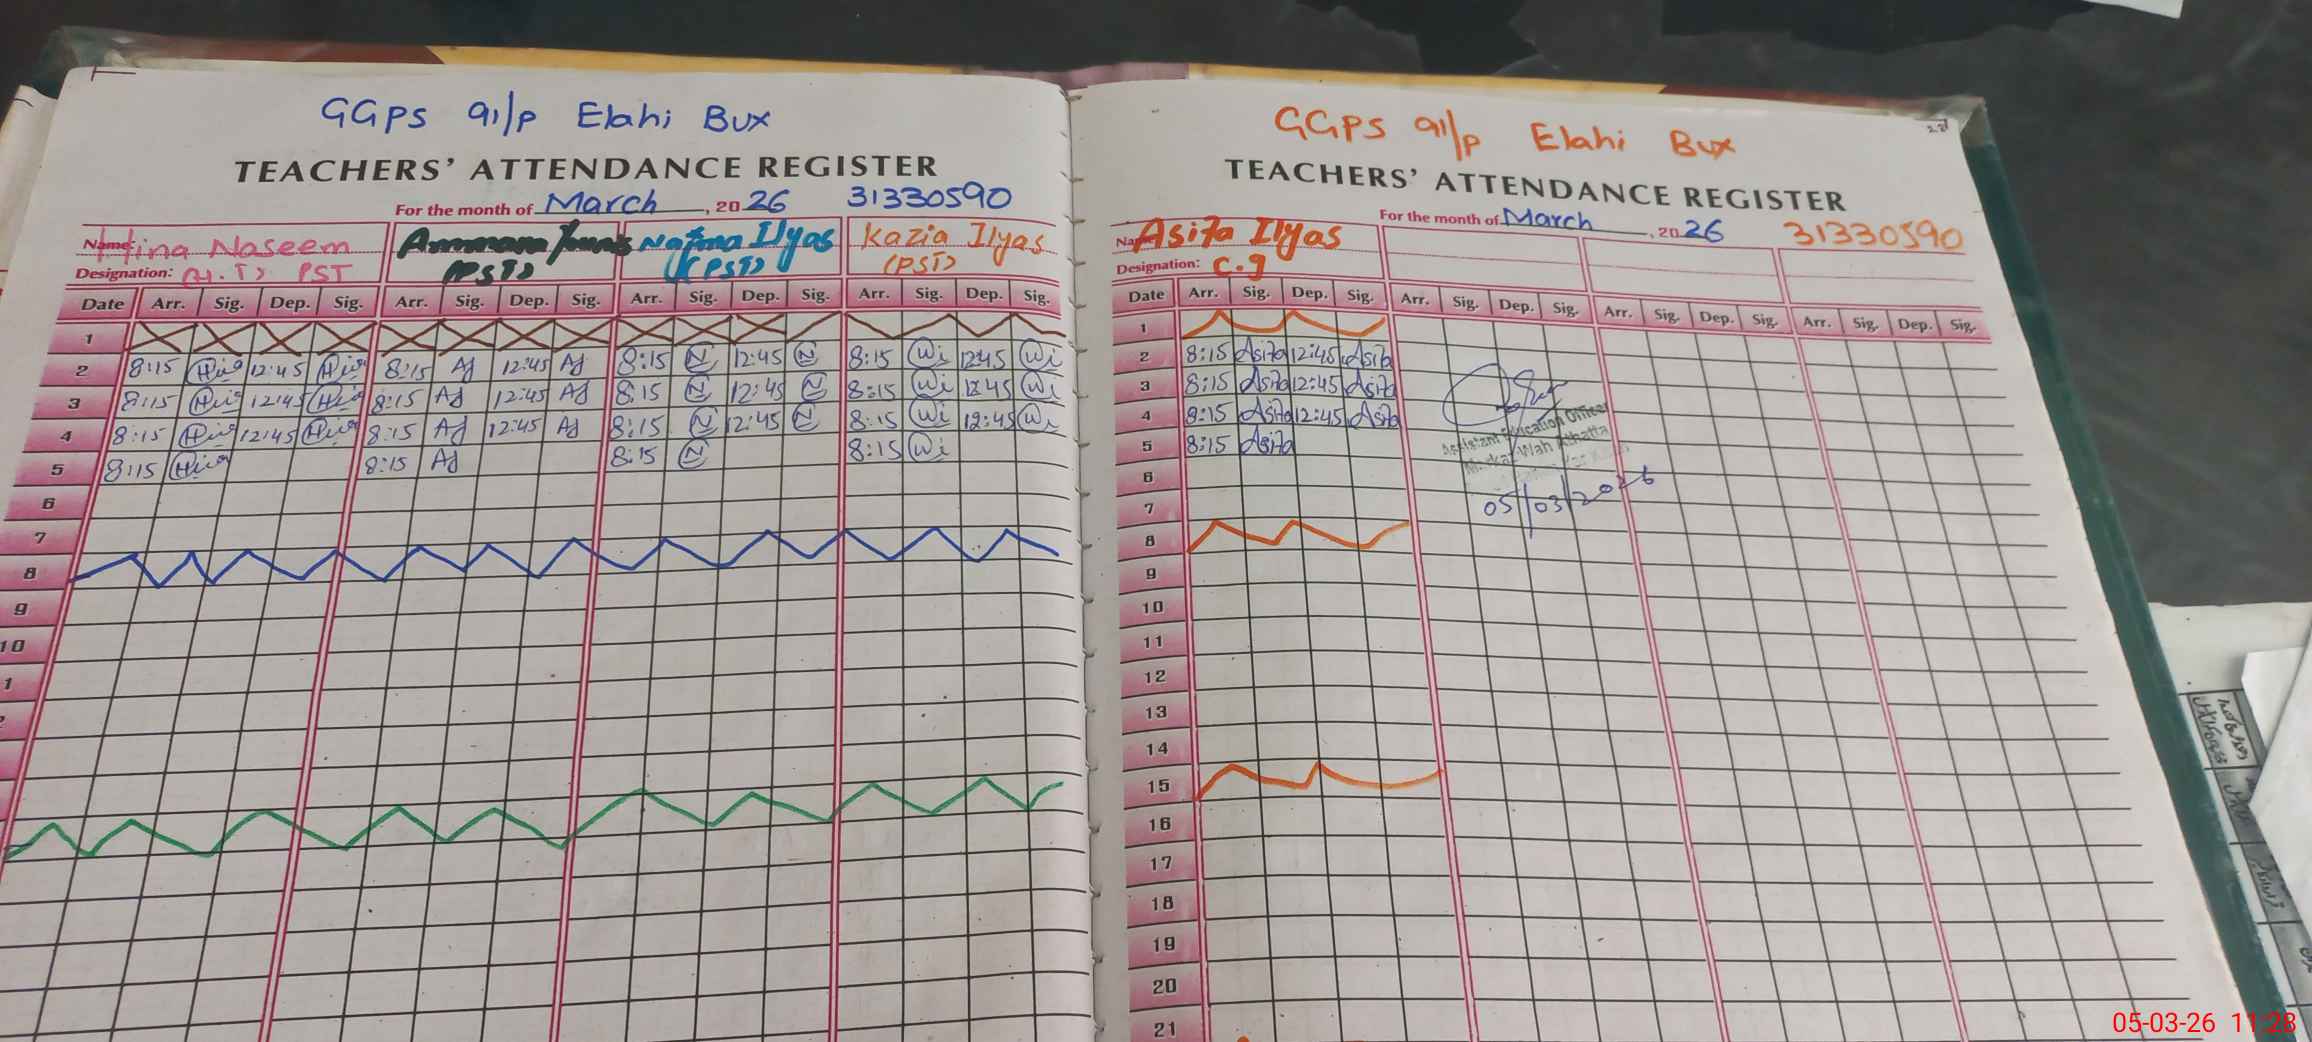 GGPS 91/P Elahi Bux
TEACHERS' ATTENDANCE REGISTER
For the month of March, 2026 31330590
Name: Hina Naseem Najma Ilyas Kazia Ilyas
Designation: (H.T) PST (PST) (PST) (PST)
Date Arr. Sig. Dep. Sig. Arr. Sig. Dep. Sig. Arr. Sig. Dep. Sig. Arr. Sig. Dep. Sig.
1
2 8:15 12:45 8:15 AJ 12:45 AJ 8:15 N 12:45 N 8:15 Wi 12:45 Wi
3 8:15 12:45 8:15 AJ 12:45 AJ 8:15 N 12:45 N 8:15 Wi 12:45 Wi
4 8:15 12:45 8:15 AJ 12:45 AJ 8:15 N 12:45 N 8:15 Wi 12:45 Wi
5 8:15 8:15 AJ 8:15 N 8:15 Wi
6
7
8
9
10
GGPS 91/P Elahi Bux
TEACHERS' ATTENDANCE REGISTER
For the month of March, 2026 31330590
Name: Asifa Ilyas
Designation: C.g
Date Arr. Sig. Dep. Sig. Arr. Sig. Dep. Sig. Arr. Sig. Dep. Sig. Arr. Sig. Dep. Sig.
1
2 8:15 Asifa 12:45 Asifa
3 8:15 Asifa 12:45 Asifa
4 8:15 Asifa 12:45 Asifa
5 8:15 Asifa
Assistant Education Officer
05/03/2026
6
7
8
9
10
11
12
13
14
15
16
17
18
19
20
21
05-03-26 11:28